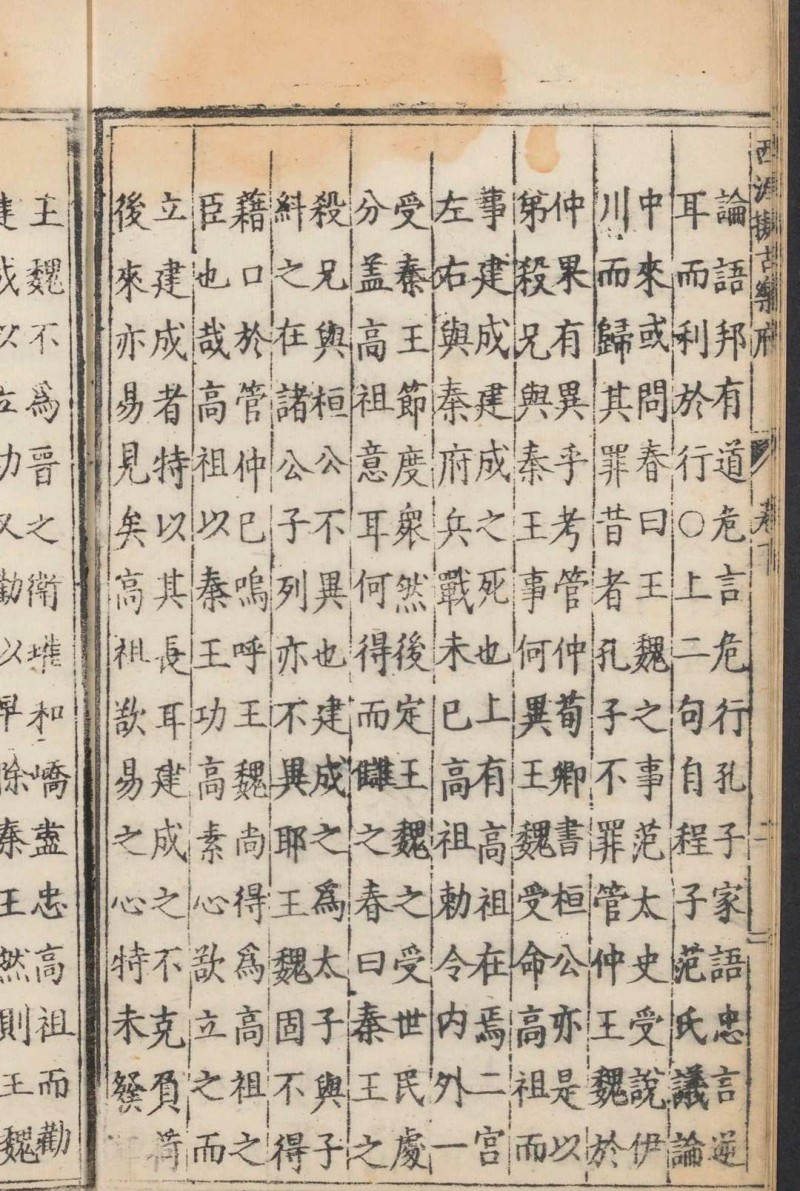 西涯擬古樂府 卷下 二
論語邦有道危言危行孔子家語忠言逆
耳而利於行○上二句自程子范氏議論
中來或問春曰王魏之事范太史受說伊
川而歸其罪昔者孔子不罪管仲王魏於
仲果有異乎考管仲荀卿書桓公亦是以
第殺兄與秦王事何異王魏受命高祖而
事建成建成之死也上有高祖在焉二宮
左右與秦府兵戰未已高祖勅令内外一
受秦王節度衆然後定王魏之受世民處
分盖高祖意耳何得而讎之春曰秦王之
殺兄與桓公不異也建成之爲太子與子
糾之在諸公子列亦不異耶王魏固不得
藉口於管仲已嗚呼王魏尚得爲高祖之
臣也哉高祖以秦王功高素心欲立之而
立建成者特以其長耳建成之不克負荷
後來亦易見矣高祖欲易之心特未發
王魏不爲晉之衛瓘和嶠盡忠高祖而勸
建成以立功又勸以早除秦王然則王魏